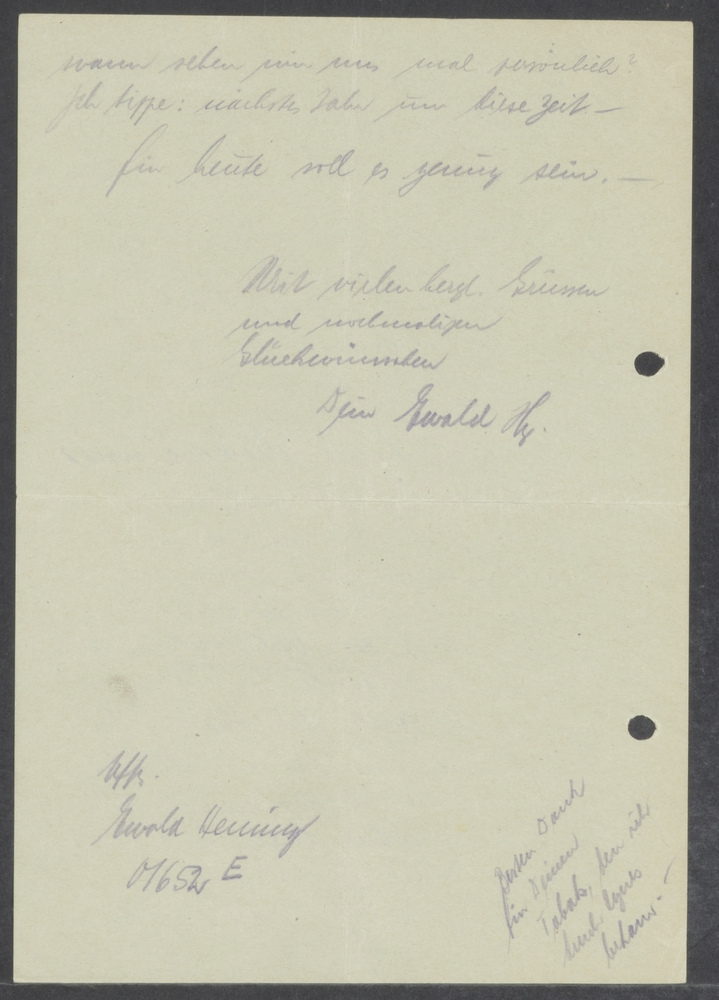 wann sehen wir uns mal persönlich?
Ich tippe: nächstes Jahr um diese Zeit —
Für heute soll es genug sein. —
Mit vielen herzl. Grüssen
und nochmaligen
Glückwünschen
Dein Ewald Hg.
Uffz.
Ewald Henning
01652 E
Besten Dank
für Deinen
Tabak, den ich
durch Agnes
bekam. —